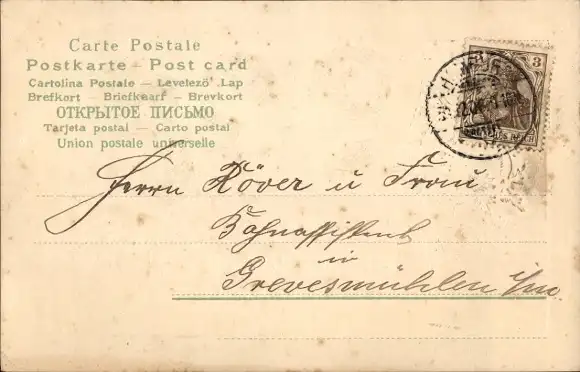 Carte Postale
Postkarte – Post card
Cartolina Postale – Levelező Lap
Brefkort – Briefkaart – Brevkort
ОТКРЫТОЕ ПИСЬМО
Tarjeta postal – Carto postal
Union postale universelle
3
REICH
Herrn Röver u Frau
Bahnassistent
in
Grevesmühlen i/m